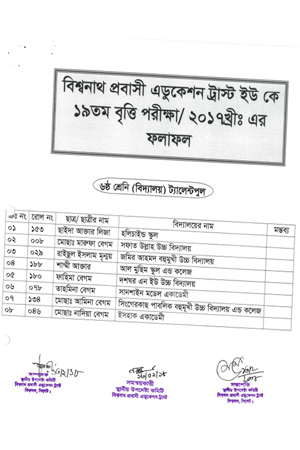 বিশ্বনাথ প্রবাসী এডুকেশন ট্রাস্ট ইউ কে
১৯তম বৃত্তি পরীক্ষা/ ২০১৭খ্রীঃ এর
ফলাফল
৬ষ্ঠ শ্রেনি (বিদ্যালয়) ট্যালেন্টপুল
ক্রঃ নং রোল নং ছাত্র/ ছাত্রীর নাম বিদ্যালয়ের নাম মন্তব্য
০১ ১৫৩ ছাইদা আক্তার লিজা হলিচাইল্ড স্কুল
০২ ০০৮ মোছাঃ মারুফা বেগম সফাত উল্লাহ উচ্চ বিদ্যালয়
০৩ ০২৯ রাইছুল ইসলাম মৃন্ময় জমির আহমদ বহুমুখী উচ্চ বিদ্যালয়
০৪ ১৮৮ শাম্মী আক্তার আল মুছিম স্কুল এন্ড কলেজ
০৫ ১৮০ ফাহিমা বেগম দশঘর এন ইউ উচ্চ বিদ্যালয়
০৬ ০৭৮ তাহমিনা বেগম সানশাইন মডেল একাডেমী
০৭ ১৩৪ মোছাঃ আমিনা বেগম সিংগেরকাছ পাবলিক বহুমুখী উচ্চ বিদ্যালয় এন্ড কলেজ
০৮ ০৪৬ মোছাঃ নাদিয়া বেগম ইসহাক একাডেমী
সমন্বয়কারী
স্থানীয় উপদেষ্টা কমিটি
বিশ্বনাথ প্রবাসী এডুকেশন ট্রাস্ট
সভাপতি
স্থানীয় উপদেষ্টা কমিটি
বিশ্বনাথ প্রবাসী এডুকেশন ট্রাস্ট
বিশ্বনাথ, সিলেট।